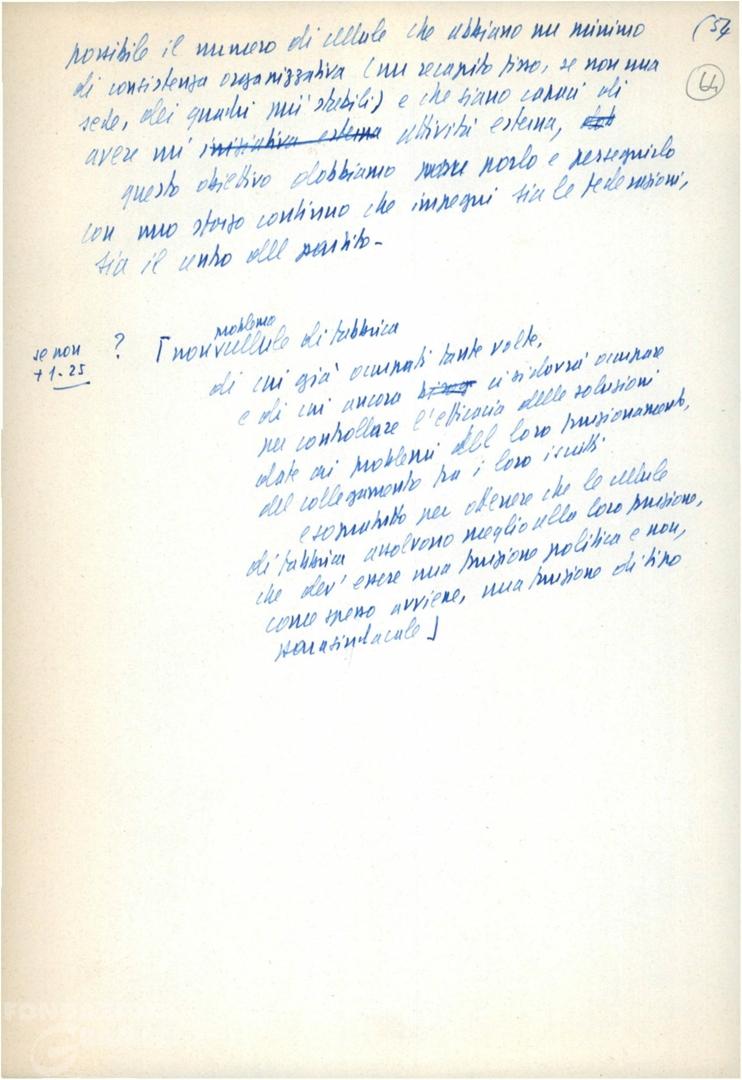 (54
44
possibile il numero di cellule che abbiano un minimo
di consistenza organizzativa (un recapito fisso, se non una
sede, dei quadri più stabili) e che siano capaci di
avere un' iniziativa esterna attività esterna,
questo obiettivo dobbiamo porlo e perseguirlo
con uno sforzo continuo che impegni sia le federazioni,
sia il centro del partito-
problema
se non ? [non cellule di fabbrica
+1-25
di cui già occupati tante volte.
e di cui ancora ci si dovrà occupare
per controllare l'efficacia delle soluzioni
date ai problemi del loro funzionamento,
del collegamento tra i loro iscritti
e soprattutto per ottenere che le cellule
di fabbrica assolvano meglio alla loro funzione,
che dev' essere una funzione politica e non,
come spesso avviene, una funzione di tipo
parasindacale]
FONDAZIONE
G